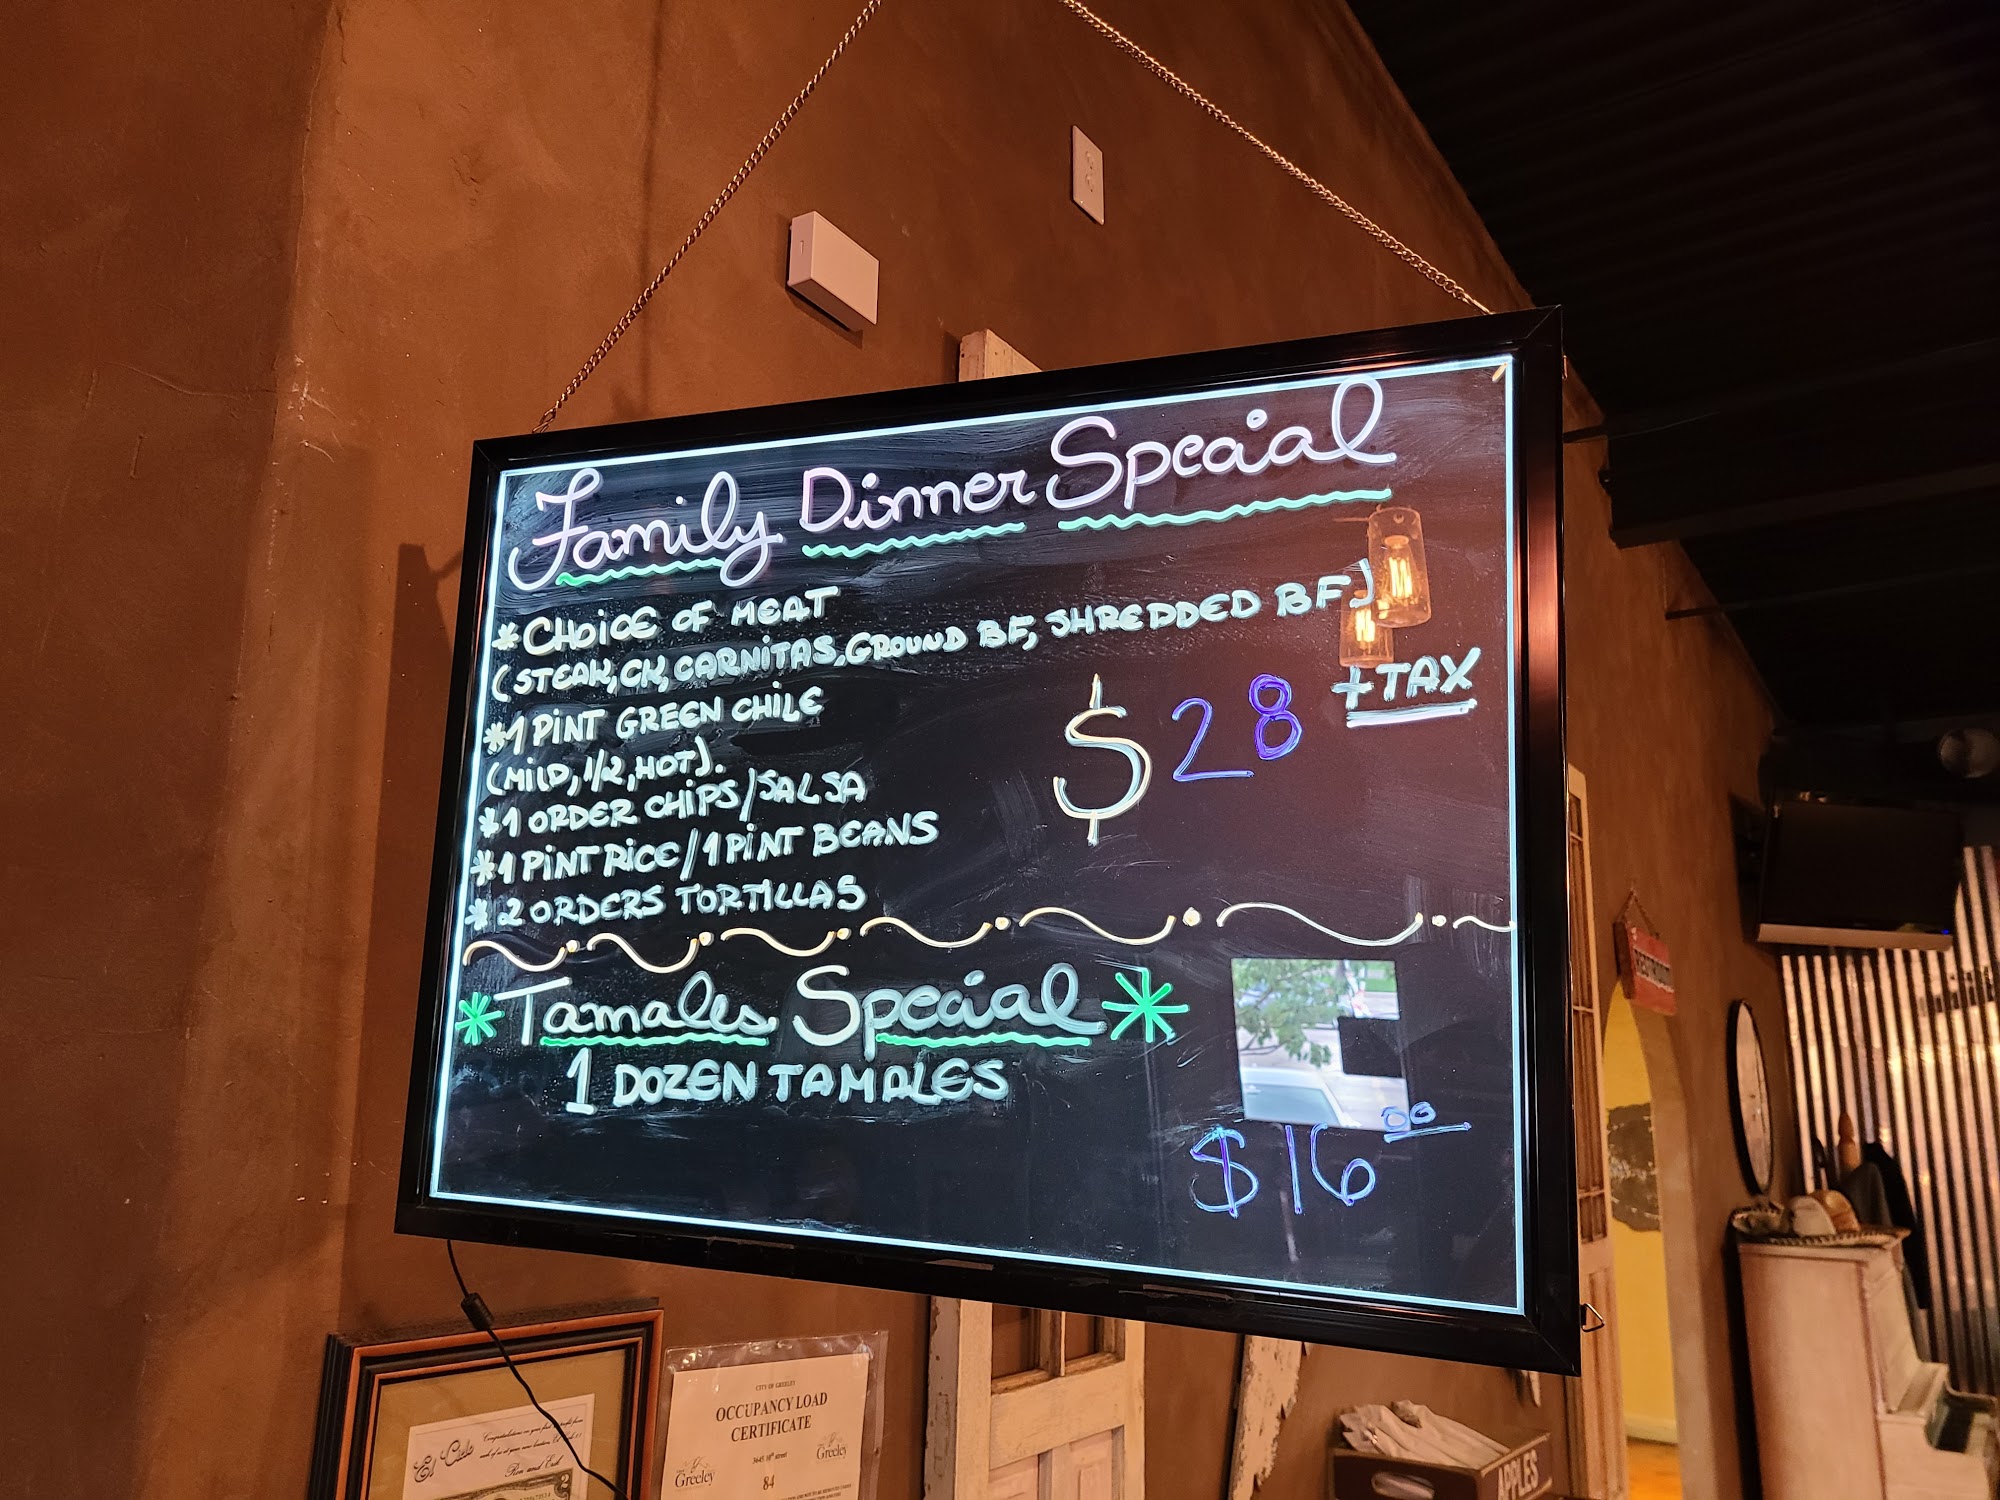 Family Dinner Special
*CHOICE OF MEAT
(STEAK, CK, CARNITAS, GROUND BF, SHREDDED BF)
*1 PINT GREEN CHILE
(MILD, 1/2, HOT).
*1 ORDER CHIPS/SALSA
*1 PINT RICE/1 PINT BEANS
*2 ORDERS TORTILLAS
$28 +TAX
*Tamales Special*
1 DOZEN TAMALES
$16 00
El Cielo
Congratulations
Ron and Erik
CITY OF GREELEY
OCCUPANCY LOAD
CERTIFICATE
3645 10th street
Greeley
Greeley
84
APPLES